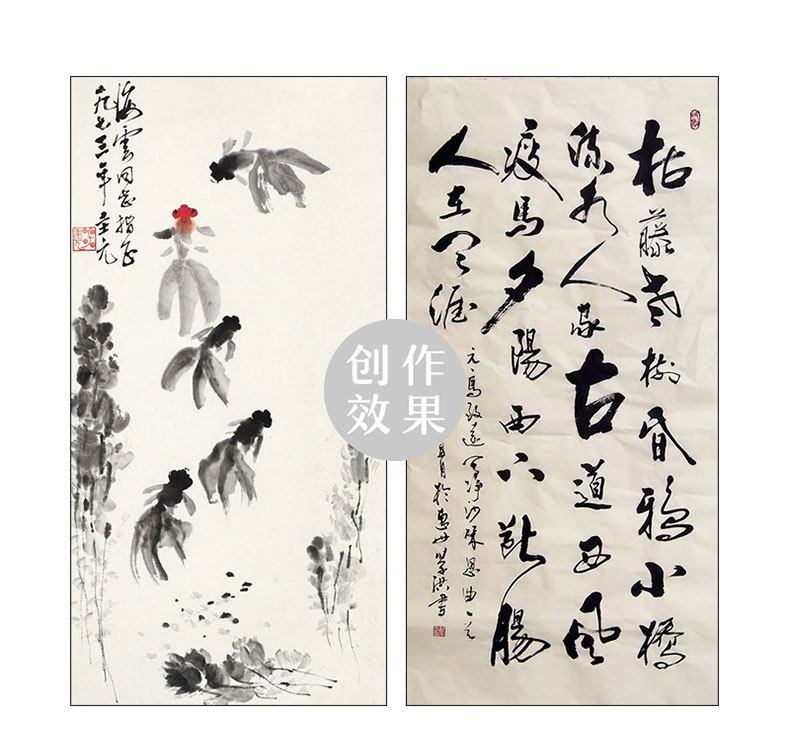 海雲同志指正
一九七三年
枯藤老樹昏鴉小橋
流水人家古道西風
瘦馬夕陽西下斷腸
人在天涯
元馬致遠天淨沙秋思曲一首
月於惠州 洪書
创作
效果